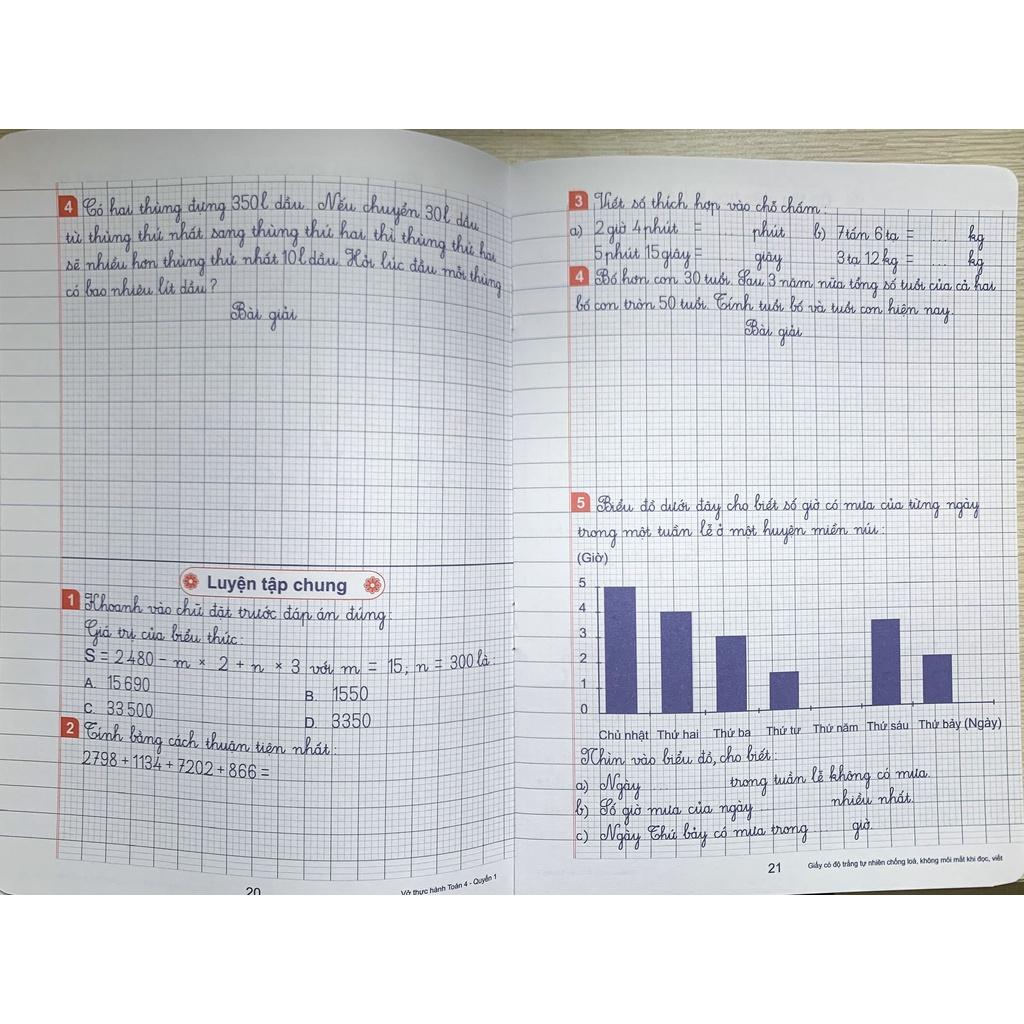 4 Có hai thùng đựng 350l dầu. Nếu chuyển 30l dầu
từ thùng thứ nhất sang thùng thứ hai thì thùng thứ hai
sẽ nhiều hơn thùng thứ nhất 10l dầu. Hỏi lúc đầu mỗi thùng
có bao nhiêu lít dầu?
Bài giải
Luyện tập chung
1 Khoanh vào chữ đặt trước đáp án đúng:
Giá trị của biểu thức:
S = 2480 - m × 2 + n × 3 với m = 15; n = 300 là:
A. 15690 B. 1550
C. 33500 D. 3350
2 Tính bằng cách thuận tiện nhất:
2798 + 1134 + 7202 + 866 =
20
Vở thực hành Toán 4 - Quyển 1
3 Viết số thích hợp vào chỗ chấm:
a) 2 giờ 4 phút = ... phút b) 7 tấn 6 tạ = ... kg
5 phút 15 giây = ... giây 3 tạ 12 kg = ... kg
4 Bố hơn con 30 tuổi. Sau 3 năm nữa tổng số tuổi của cả hai
bố con tròn 50 tuổi. Tính tuổi bố và tuổi con hiện nay.
Bài giải
5 Biểu đồ dưới đây cho biết số giờ có mưa của từng ngày
trong một tuần lễ ở một huyện miền núi:
(Giờ)
5
4
3
2
1
0
Chủ nhật Thứ hai Thứ ba Thứ tư Thứ năm Thứ sáu Thứ bảy (Ngày)
Nhìn vào biểu đồ, cho biết:
a) Ngày ... trong tuần lễ không có mưa.
b) Số giờ mưa của ngày ... nhiều nhất.
c) Ngày Thứ bảy có mưa trong ... giờ.
21
Giấy có độ trắng tự nhiên chống loá, không mỏi mắt khi đọc, viết